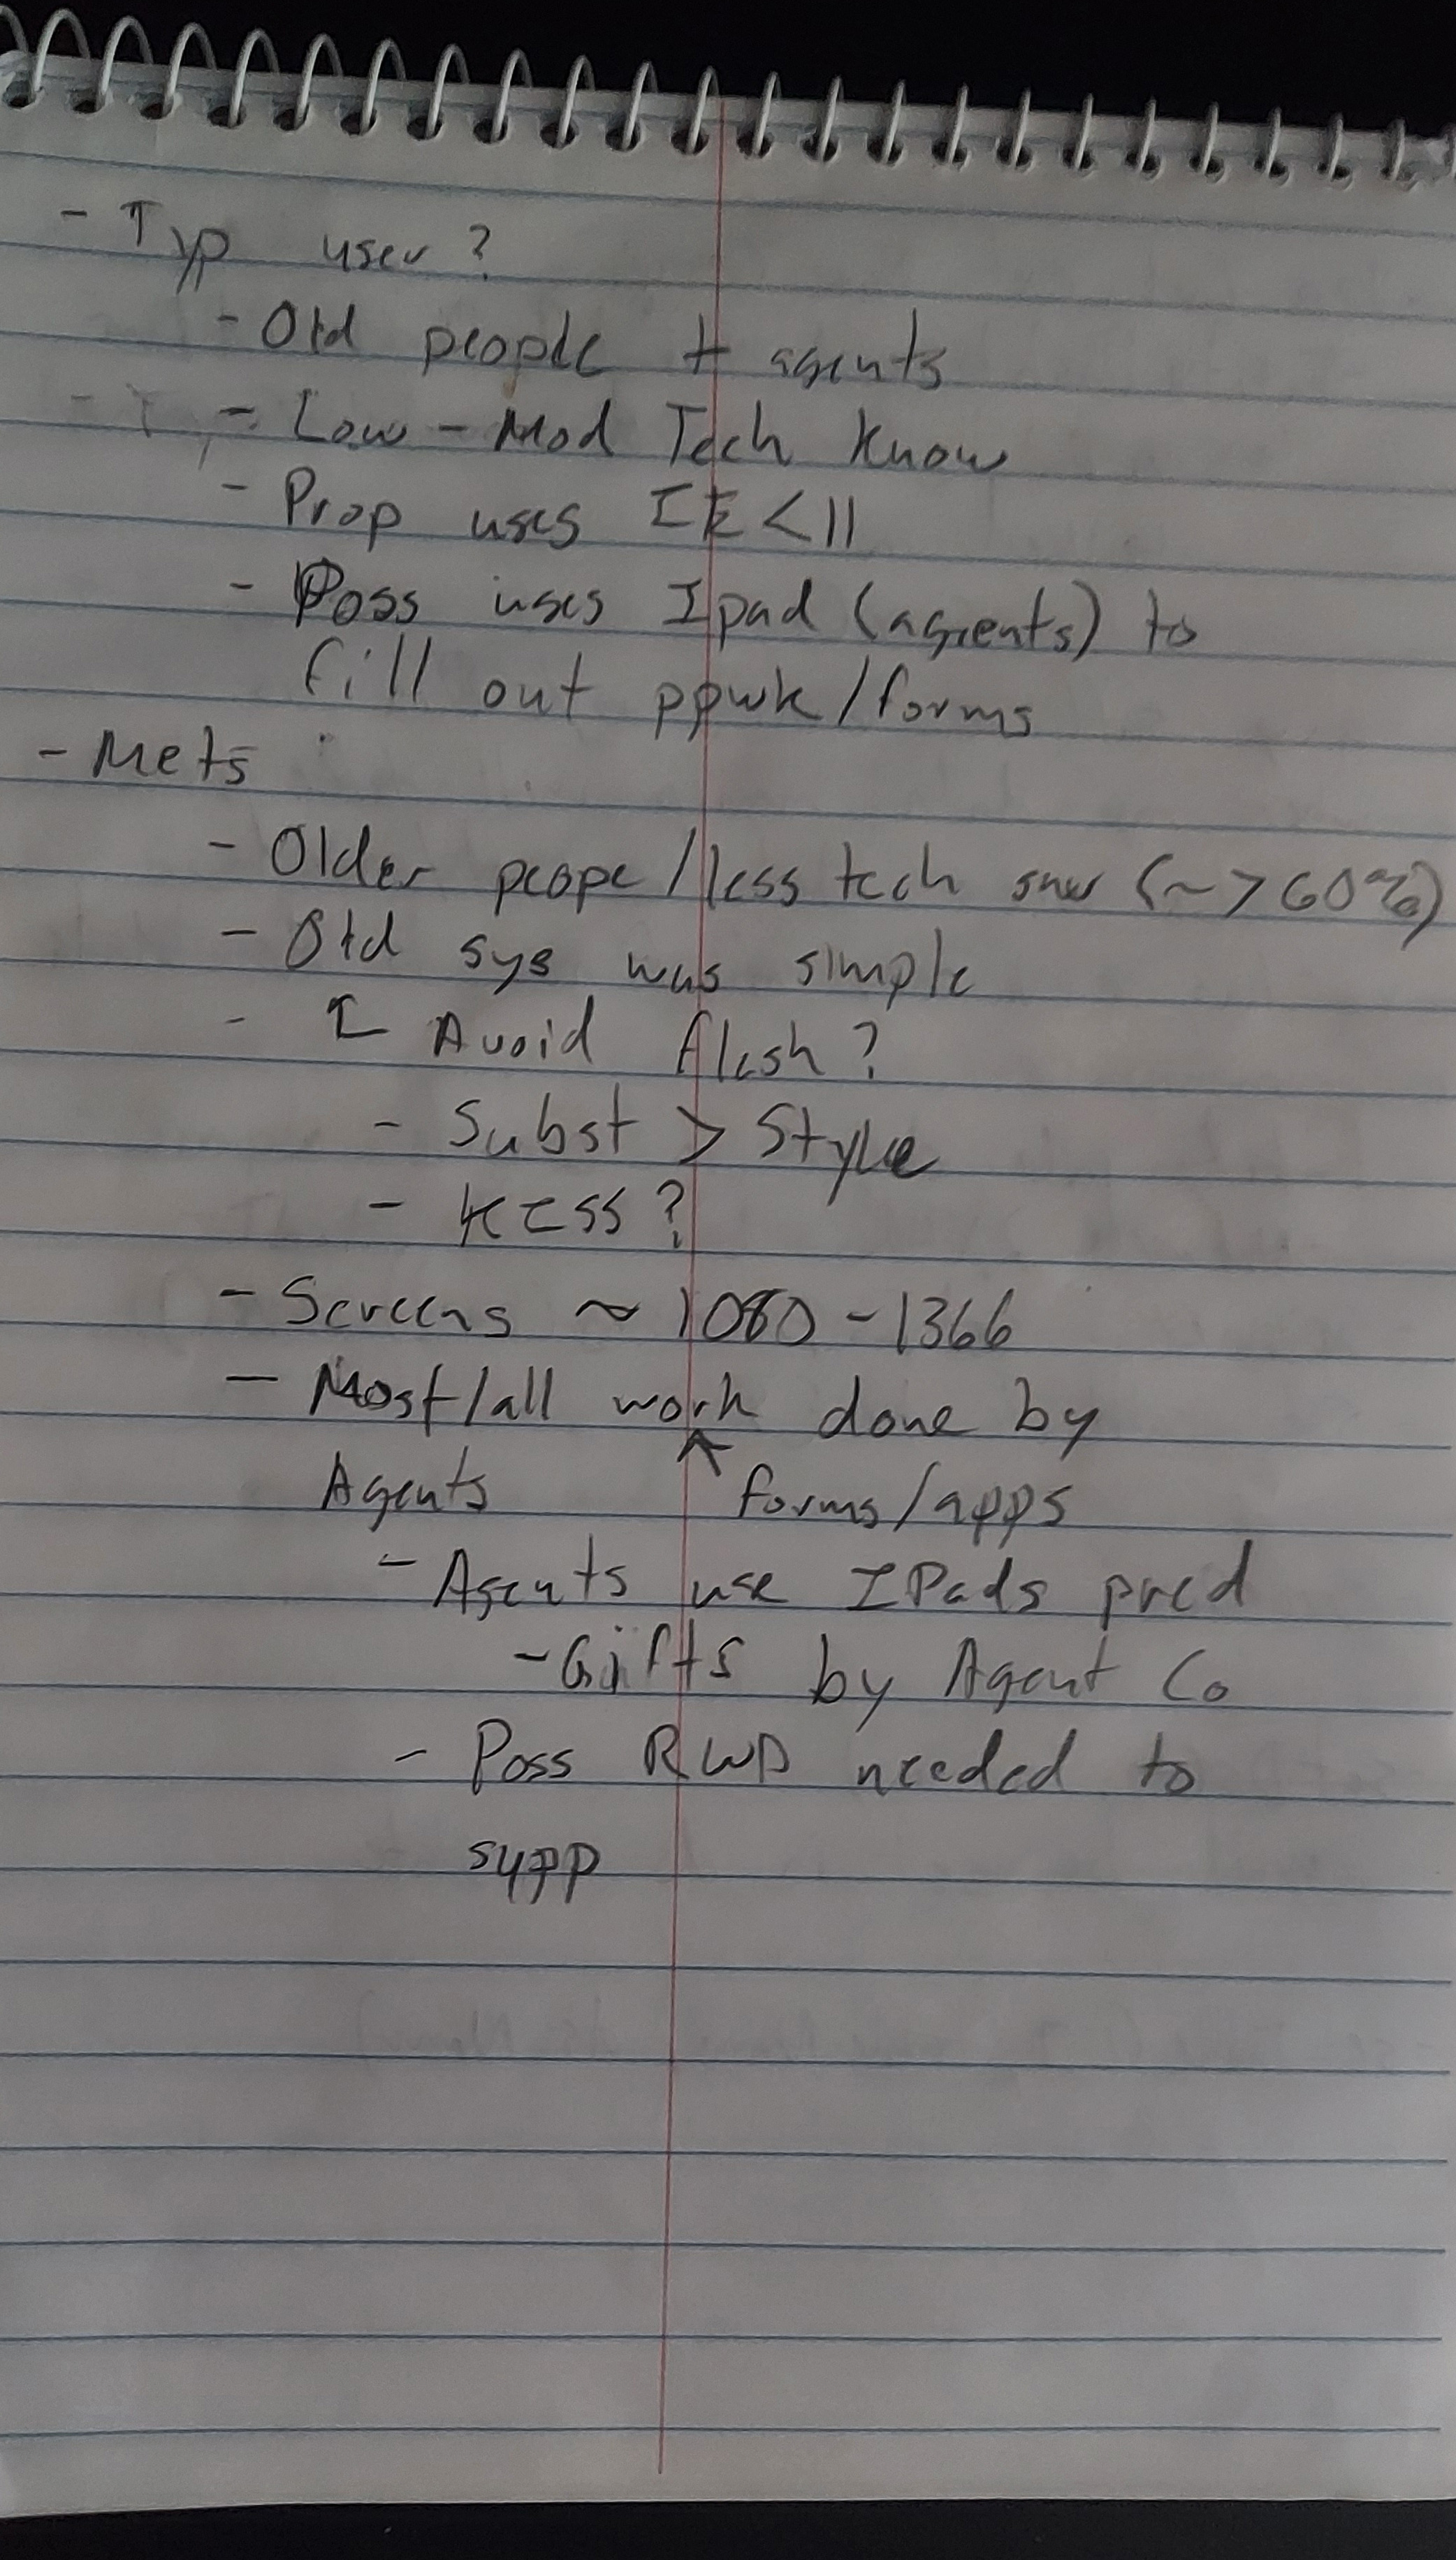 - Typ user?
- Old people + agents
- Low - Mod Tech Know
- Prop uses IE < 11
- Poss uses Ipad (agents) to
fill out ppwk/forms
- Mets
- Older peope/less tech (~>60%)
- Old sys was simple
- I Avoid flash?
- Subst > Style
- KISS?
- Screens ~ 1080 - 1366
- Most/all work done by
Agents ^ forms/apps
- Agents use IPads pred
- Gifts by Agent Co
- Poss RWD needed to
supp